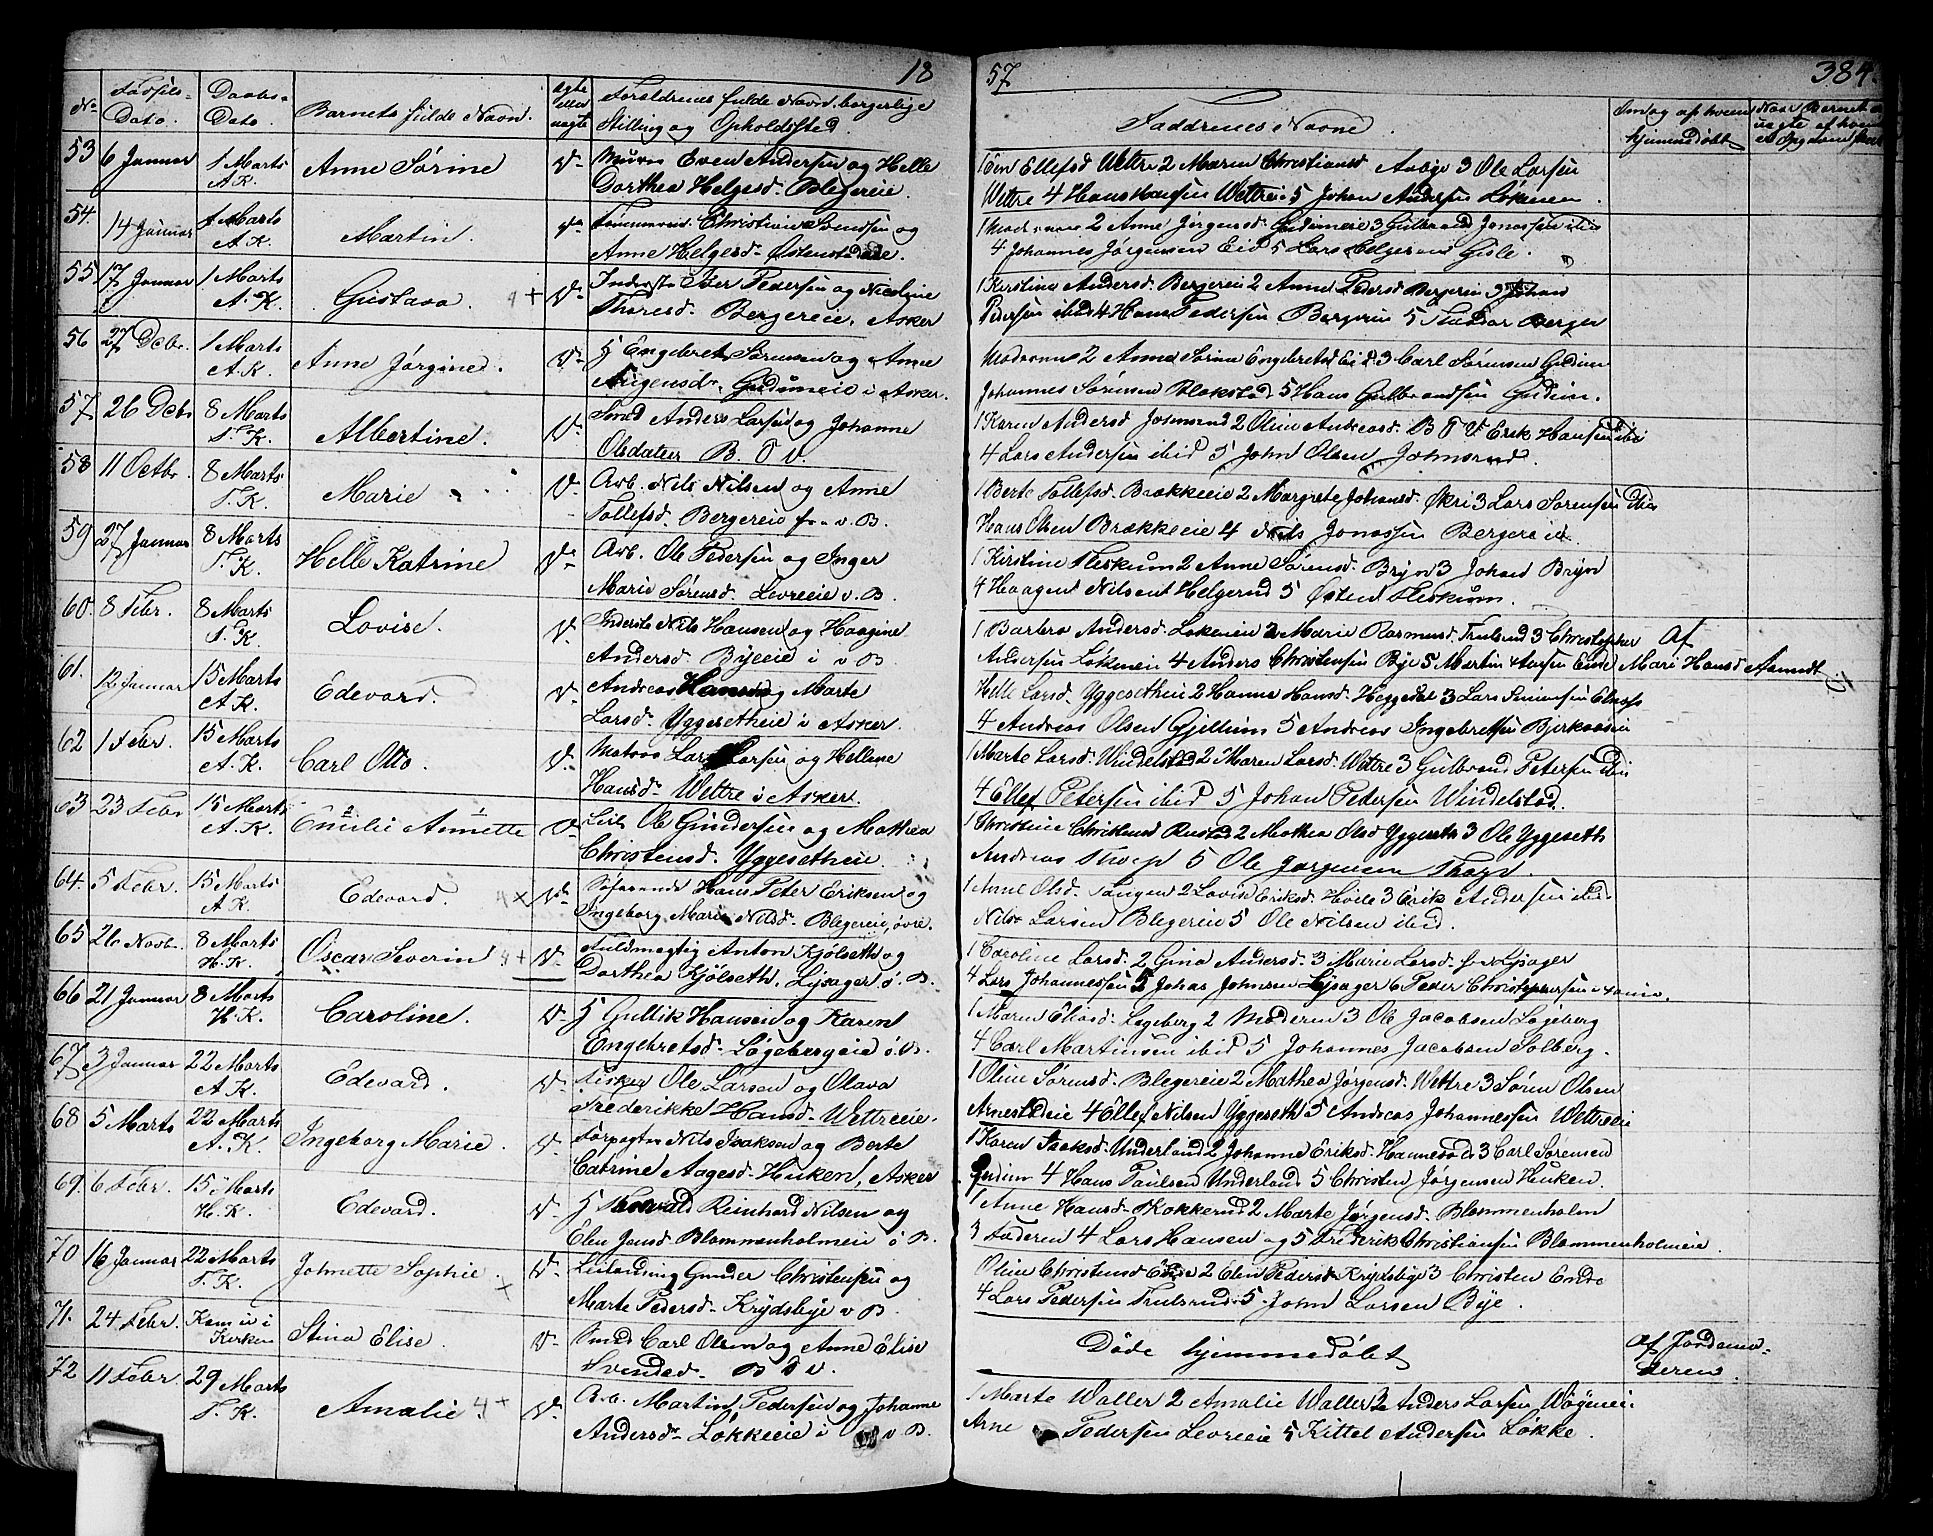 18
57
384.
No
Fødsels-
Dato.
Daabs-
Dato.
Barnets fulde Navn.
ægte
eller
uægte
Forældrenes fulde Navn, borgerlige
Stilling og Opholdssted.
Faddrenes Navne.
Om og af hvem
hjemmedøbt
53
6 Januar
1 Marts
A. K.
Anne Sørine
Even Andersen og Helle
Dorthea Helgesd. Blegereie.
Ellefsd Wettre 2 Maren Christiansd 3 Ole Larsen
Wettre 4 Hans Hansen Wettreie 5 Johan Andersen Løkenen
54.
14 Januar
1 Marts
A. K.
Martin.
Christian Svendsen og
Anne Helgesd. Østenstadeie.
1 Moderen 2 Anne Jørgensd. Gudimeie 3 Gulbrand Jonassen ibid
4 Johannes Jørgensen Eid 5 Lars Helgesen Gisle.
55
17 Januar
1 Marts
A. K.
Gustava. 4 +
Inderste Iver Pedersen og Nicoline
Thoresd. Bergereie, Asker
1 Kirstine Andersd. Bergereie 2 Anne Pedersd Bergereie 3 Johan
Pedersen ibid 4 Hans Pedersen Bergereie 5 Berger
56
27 Decbr.
1 Marts
A. K.
Anne Jørgine.
G Engebret Sørensen og Anne
Gudimeie i Asker.
Moderen 2 Anne Sørine Engebretsd Eid 3 Carl Sørensen Gudim
Johannes Sørensen Blakstad 5 Hans Gulbrandsen Gudim.
57.
26 Decbr
8 Marts
T. K.
Albertine.
Smed Anders Larsen og Johanne
Olsdatter B. T V.
1 Karen Andersd Johnsrud 2 Oline Andreasd. B T V. Erik Hansen ibid
4 Lars Andersen ibid 5 John Olsen Johnsrud.
58
11 Octbr.
8 Marts
T. K.
Marie
Arb. Nils Nilsen og Anne
Tollefsd. Bergereie v. B.
1 Berte Tollefsd. Brækkeeie 2 Margrete Johansd. Økri 3 Lars Sørensen ibid
Hans Olsen Brækkeeie 4 Nils Jonassen Bergereie.
59
27 Januar
8 Marts
T. K.
Helle Katrine
Arb. Ole Pedersen og Inger
Marie Sørensd. Levreeie v. B.
1 Kirstine Fleskum 2 Anne Sørensd. Bryn 3 Johan Bryn
4 Haagen Nilsen Helgerud 5 Østen Fleskum.
60.
8 Febr.
8 Marts
T. K.
Lovise.
Inderste Nils Hansen og Haagine
Andersd. Byeeie i v. B.
1 Barbro Andersd. Løkeeie 2 Marie Rasmusd. Trulsrud 3 Christopher
Andersen Løkeneie 4 Anders Christensen Bye 5 Martin Larsen Ende
Af
Mari Hansd Aamodt
61.
12 Januar
15 Marts
A. K.
Edevard.
Andreas Hansen og Marte
Larsd. Yggesetheie i Asker.
Helle Larsd. Yggesetheie 2 Hanna Hansd. Heggedal 3 Lars
4 Andreas Olsen Gjellum 5 Andreas Ingebretsen Bjerkaaseie
62
1 Febr.
15 Marts
A. K.
Carl Otto.
Matros Lars Larsen og Hellene
Hansd. Wettre i Asker.
1 Marte Larsd. Windelstad 2 Maren Larsd. Wettre 3 Gulbrand Petersen ibid
4 Ellef Petersen ibid 5 Johan Pedersen Windelstad.
63
23 Febr
15 Marts
A. K.
Emilie Annette
Leil. Ole Gundersen og Mathea
Christensd. Yggesetheie.
1 Christine Christensd Rustad 2 Mathea Olsd Yggeseth 3 Ole Yggeseth
Andreas 5 Ole Jørgensen
64.
5 Febr.
15 Marts
A K.
Edevard. 4 x
Søfarende Hans Peter Eriksen og
Ingeborg Marie Nilsd. Blegereie, øvre.
1 Anne Olsd. Tangen 2 Lovise Eriksd. Hvile 3 Erik Andersen ibid
Nils Larsen Blegereie 5 Ole Nilsen ibid.
65
26 Novbr.
8 Marts
H. K.
Oscar Severin 4 +
Fuldmægtig Anton Kjølseth og
Dorthea Kjølseth. Lysager ø. B.
1 Caroline Larsd. 2 Gina Andersd. 3 Marie Larsd. Lysager
4 Lars Johannessen 5 Johan Johnsen Lysager 6 Peder Christophersen
66
21 Januar
8 Marts
H. K.
Caroline.
G Gullik Hansen og Karen
Engebretsd. Løgebergeie ø. B.
1 Maren Eliasd. Løgeberg 2 Moderen 3 Ole Jacobsen Løgeberg
4 Carl Martinsen ibid 5 Johannes Jacobsen Solberg.
67
3 Januar
22 Marts
A. K.
Edevard.
Fisker Ole Larsen og Olava
Frederikke Hansd. Wettreeie.
1 Oline Sørensd. Blegereie 2 Mathea Jørgensd. Wettre 3 Søren Olsen
Arnestadeie 4 Ellef Nilsen Yggeseth 5 Andreas Johannessen Wettreeie
68
5 Marts
22 Marts
A. K.
Ingeborg Marie.
Forpagter Nils Isaksen og Berte
Catrine Aagesd. Huken, Asker
1 Karen Isaksd. Underland 2 Johanne Eriksd. Hannevold 3 Carl Sørensen
Gudim 4 Hans Paulsen Underland 5 Christen Jørgensen Huken.
69.
6 Febr.
15 Marts
H. K.
Edevard.
G Thorvald Reinhard Nilsen og
Elen Jensd. Blommenholmeie ø B.
1 Anne Hansd. Kokkerud 2 Marte Jørgensd. Blommenholm
3 Faderen 4 Lars Hansen og 5 Frederik Christiansen Blommenholmeie.
70
16 Januar
22 Marts
T. K.
Johnette Sophie. +
Leilænding Gunder Christensen og
Marte Pedersd. Krydsbye v B.
Oline Christensd Ende 2 Elen Pedersd. Krydsbye 3 Christen Ende
4 Lars Pedersen Trulsrud 5 John Larsen Bye.
71.
24 Febr.
Kom ei i
Kirken
Stina Elise.
Smed Carl Olsen og Anne Elise
Svendsd. B V.
Døde hjemmedøbt
Af Jordemo-
deren.
72
11 Febr.
29 Marts
T. K.
Amalie. 4 +
Arb. Martin Pedersen og Johanne
Andersd. Løkkeeie i v B.
1 Marte Waller 2 Amalie Waller 3 Anders Larsen Wøyeneie.
Arne Pedersen Levreeie 5 Kittel Andersen Løkke.